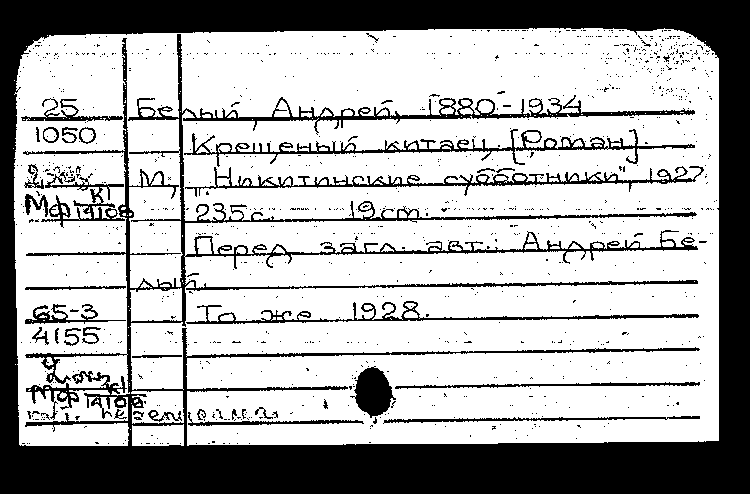 25 Белый, Андрей, 1880-1934
1050 Крещеный китаец. [Роман].
М., "Никитинские субботники", 1927
МФ К1 235с. 19см.
Перед загл. авт.: Андрей Бе-
лый.
65-3 То же 1928.
4155
2 экз
МФ К1